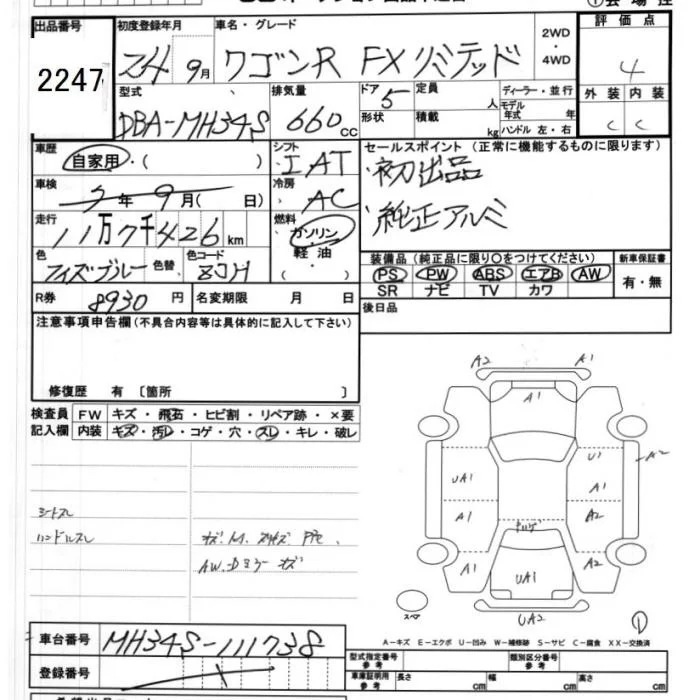 出品番号 2247
初度登録年月 24 9月
車名・グレード ワゴンR FXリミテッド
2WD・4WD
評価点 4
外装 内装
C C
型式 DBA-MH34S
排気量 660cc
ドア 5
形状
定員 人
積載 kg
ディーラー・並行
モデル年式 年
ハンドル 左・右
車歴 自家用・( )
シフト IAT
セールスポイント(正常に機能するものに限ります)
初出品
純正アルミ
車検 年9月( 日)
冷房 AC
走行 11万7千426km
燃料 ガソリン・軽油・( )
色 フィズブルー 色替 色コード ZJH
装備品(純正品に限り○をつけてください)
PS PW ABS エアB AW
SR ナビ TV カワ
新車保証書 有・無
R券 8930円
名変期限 月 日
後日品
注意事項申告欄(不具合内容等は具体的に記入して下さい)
修復歴 有 〔箇所 〕
検査員記入欄
FW キズ・飛石・ヒビ割・リペア跡・×要
内装 キズ・汚レ・コゲ・穴・スレ・キレ・破レ
シートスレ
ハンドルスレ
AW.Dミラーキズ
A2 A1
A1
UA1 U1 A2
A1
A1 A2
A1 UA1 A1
UA2
スペア
A-キズ E-エクボ U-凹み W-補修跡 S-サビ C-腐食 XX-交換済
車台番号 MH34S-111738
登録番号
型式指定番号 参考
類別区分番号 参考
車庫証明用 参考 長さ cm 幅 cm 高さ cm